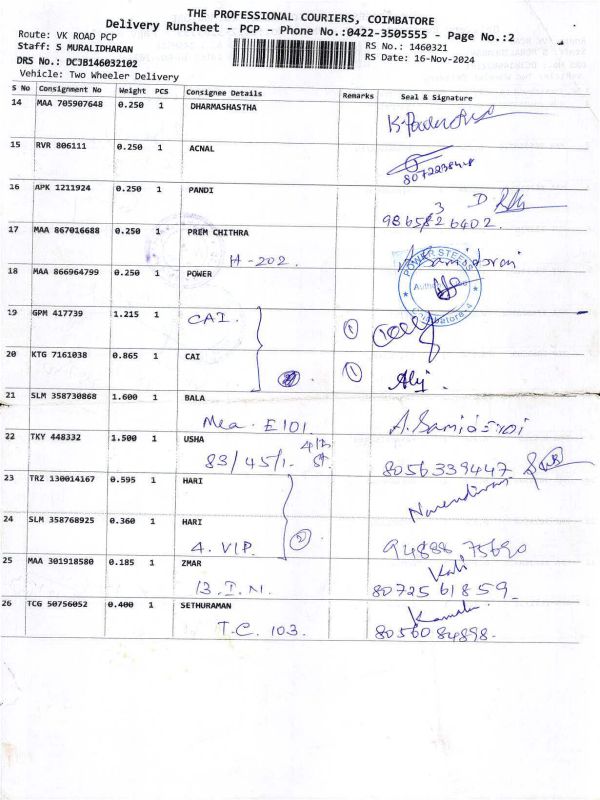 THE PROFESSIONAL COURIERS, COIMBATORE
Delivery Runsheet - PCP - Phone No.:0422-3505555 - Page No.:2
Route: VK ROAD PCP
RS No.: 1460321
Staff: S MURALIDHARAN
RS Date: 16-Nov-2024
DRS No.: DCJB146032102
Vehicle: Two Wheeler Delivery
S No Consignment No Weight PCS Consignee Details Remarks Seal & Signature
14 MAA 705907648 0.250 1 DHARMASHASTHA
15 RVR 806111 0.250 1 ACNAL
16 APK 1211924 0.250 1 PANDI
17 MAA 867016688 0.250 1 PREM CHITHRA
H-202.
18 MAA 866964799 0.250 1 POWER
POWER STEELS
Coimbatore-4
19 GPM 417739 1.215 1 CAI. 1
20 KTG 7161038 0.865 1 CAI 1
21 SLM 358730868 1.600 1 BALA
Mea. E101.
22 TKY 448332 1.500 1 USHA
83/45/1. 8056339447
23 TRZ 130014167 0.595 1 HARI
24 SLM 358768925 0.360 1 HARI
4. VIP. 2 94888 75690
25 MAA 301918580 0.185 1 ZMAR Kali
B.I.N. 8072561859
26 TCG 50756052 0.400 1 SETHURAMAN Kamala
T.C. 103. 8056084898.